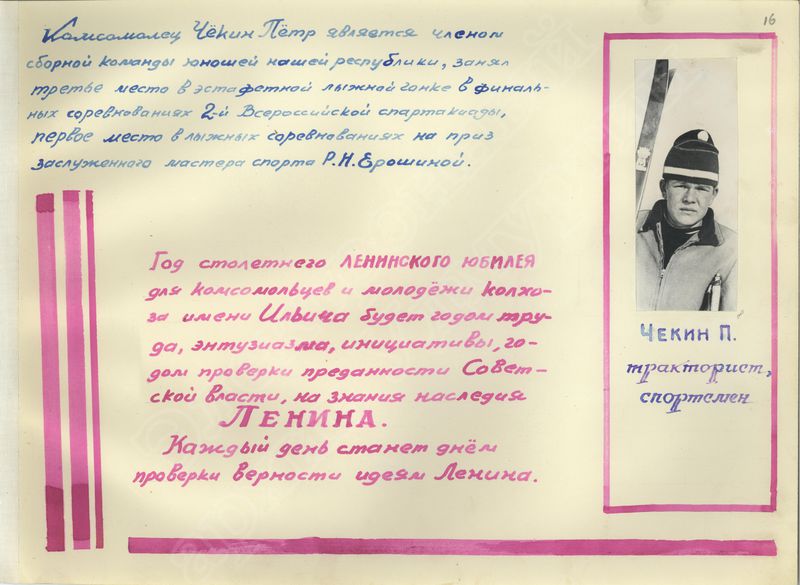 16
Комсомолец Чёкин Пётр является членом
сборной команды юношей нашей республики, занял
третье место в эстафетной лыжной гонке в финаль-
ных соревнованиях 2-й Всероссийской спартакиады,
первое место в лыжных соревнованиях на приз
заслуженного мастера спорта Р.Н.Ерошиной.
Год столетнего ЛЕНИНСКОГО ЮБИЛЕЯ
для комсомольцев и молодёжи колхо-
за имени Ильича будет годом тру-
да, энтузиазма, инициативы, го-
дом проверки преданности Совет-
ской власти, на знания наследия
ЛЕНИНА.
Каждый день станет днём
проверки верности идеям Ленина.
ЧЕКИН П.
тракторист,
спортсмен